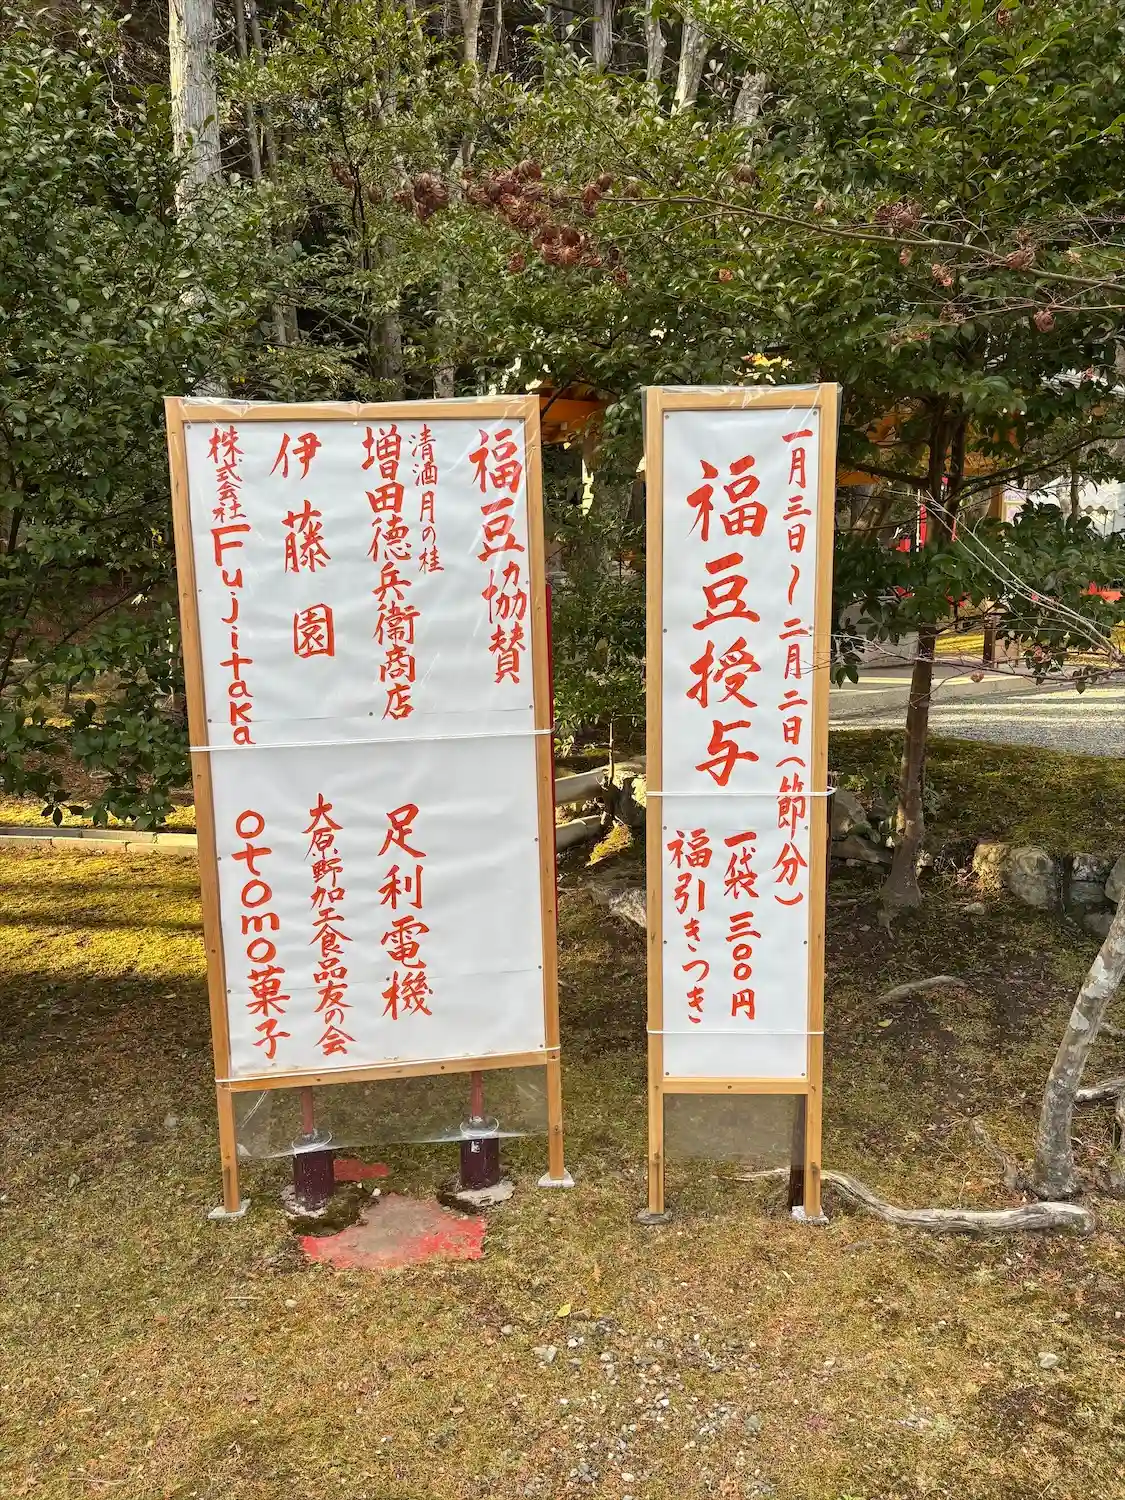 一月三日〜二月二日(節分)
福豆授与
一袋 三〇〇円
福引きつき
福豆協賛
清酒月の桂
増田德兵衞商店
伊藤園
株式会社Fujitaka
足利電機
大原野加工食品友の会
otomo菓子